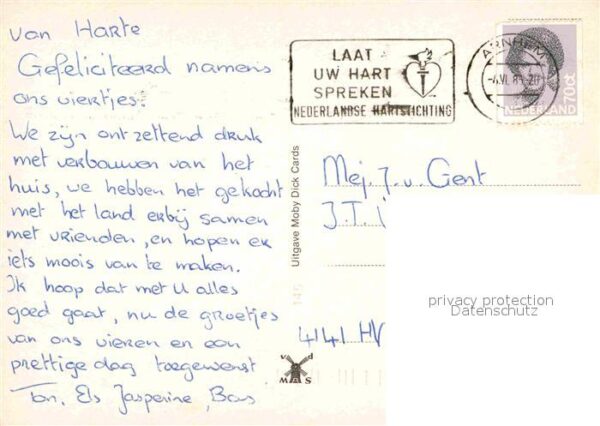 van Harte
Gefeliciteerd namens
ons viertjes.
We zijn ontzettend druk
met verbouwen van het
huis, we hebben het gekocht
met het land erbij samen
met vrienden, en hopen er
iets moois van te maken.
Ik hoop dat met U alles
goed gaat, nu de groetjes
van ons vieren en een
prettige dag toegewenst
Ton, Els Jasperine, Bas
LAAT
UW HART
SPREKEN
NEDERLANDSE HARTSTICHTING
ARNHEM
NEDERLAND
70ct
Uitgave Moby Dick Cards
145
Mej. J. v. Gent
J.T.
4141 HV
v d
M A S
privacy protection
Datenschutz